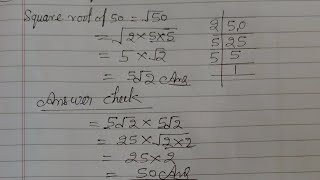 Square root of 50 = √50
= √2×5×5
= 5 × √2
= 5√2 Ans
2 | 5,0
5 | 25
5 | 5
| 1
Answer check
= 5√2 × 5√2
= 25 × √2×2
= 25 × 2
= 50 Ans